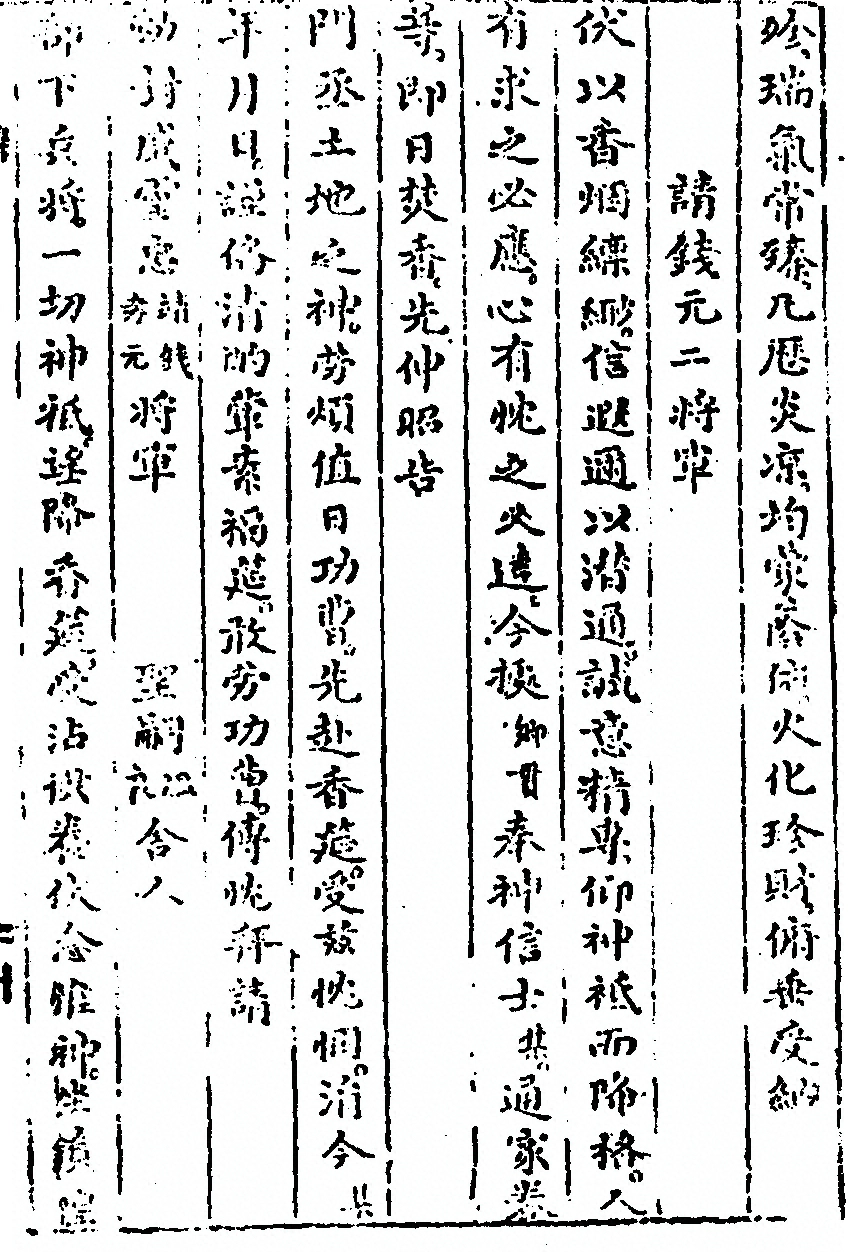 瑞氣常臻凡歷炎凉均蒙蔭佑火化珍財俯垂受納
請錢元二將軍
伏以香烟縹緲信遐邇以潜通誠意精專仰神祗而降格人
有求之必應心有愧之必遣今㨗鄉貫奉神信士某通家眷
等即日焚香先伸昭告
門丞土地之神勞煩值日功曹先赴香筵受兹愧悃涓今某
年月日謹俻清酌葷素福筵敢勞功曹傳愧拜請
勅封威靈惠請錢元將軍 聖嗣舍人
部下兵將一切神祗迋降香筵受沾供養伏念惟神坐鎮